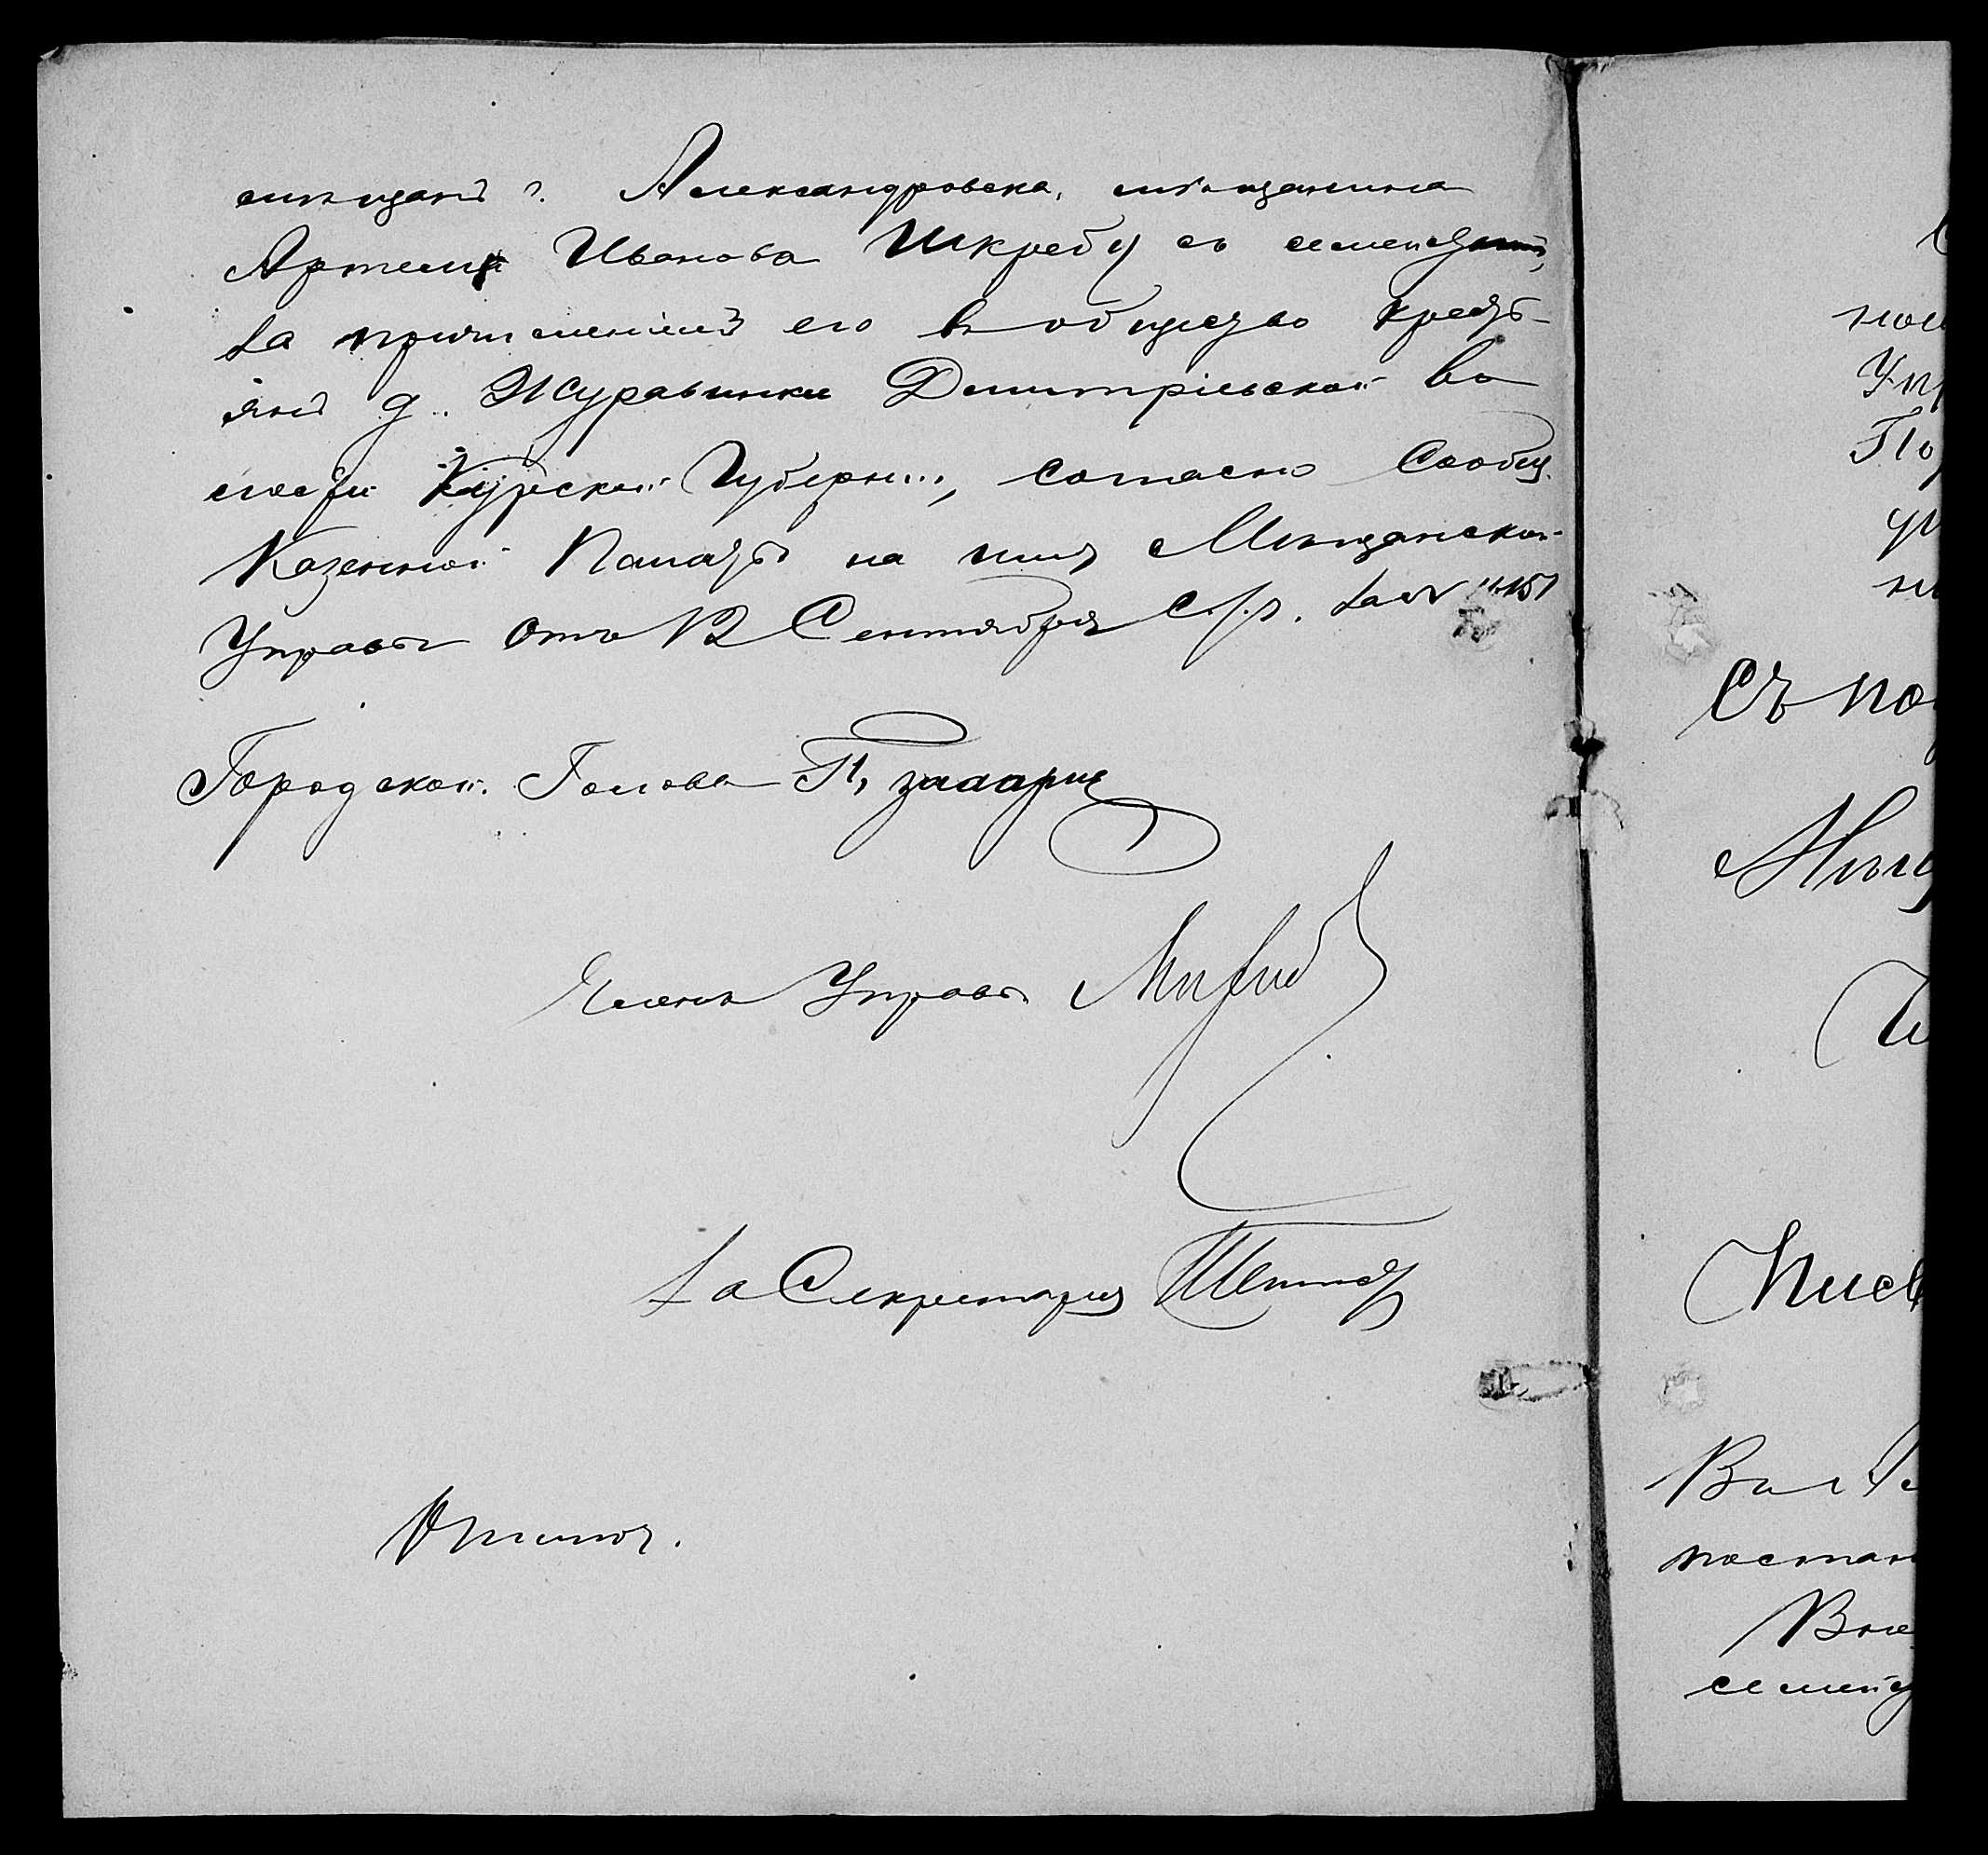 мѣщанъ г. Александровска, мѣщанина
Артема Иванова Шкребу съ семейств,
за причисленіемъ его въ общество кресть-
янъ д. Журавинки Дмитріевской во
лости Курской Губерніи, согласно Сообщ.
Казенной Палаты на имя Мѣщанской
Управы отъ 12 Сентября с/г. за №
Городской Голова
Членъ Управы
За Секретаря
съ по
Мѣщ
постан
семейс